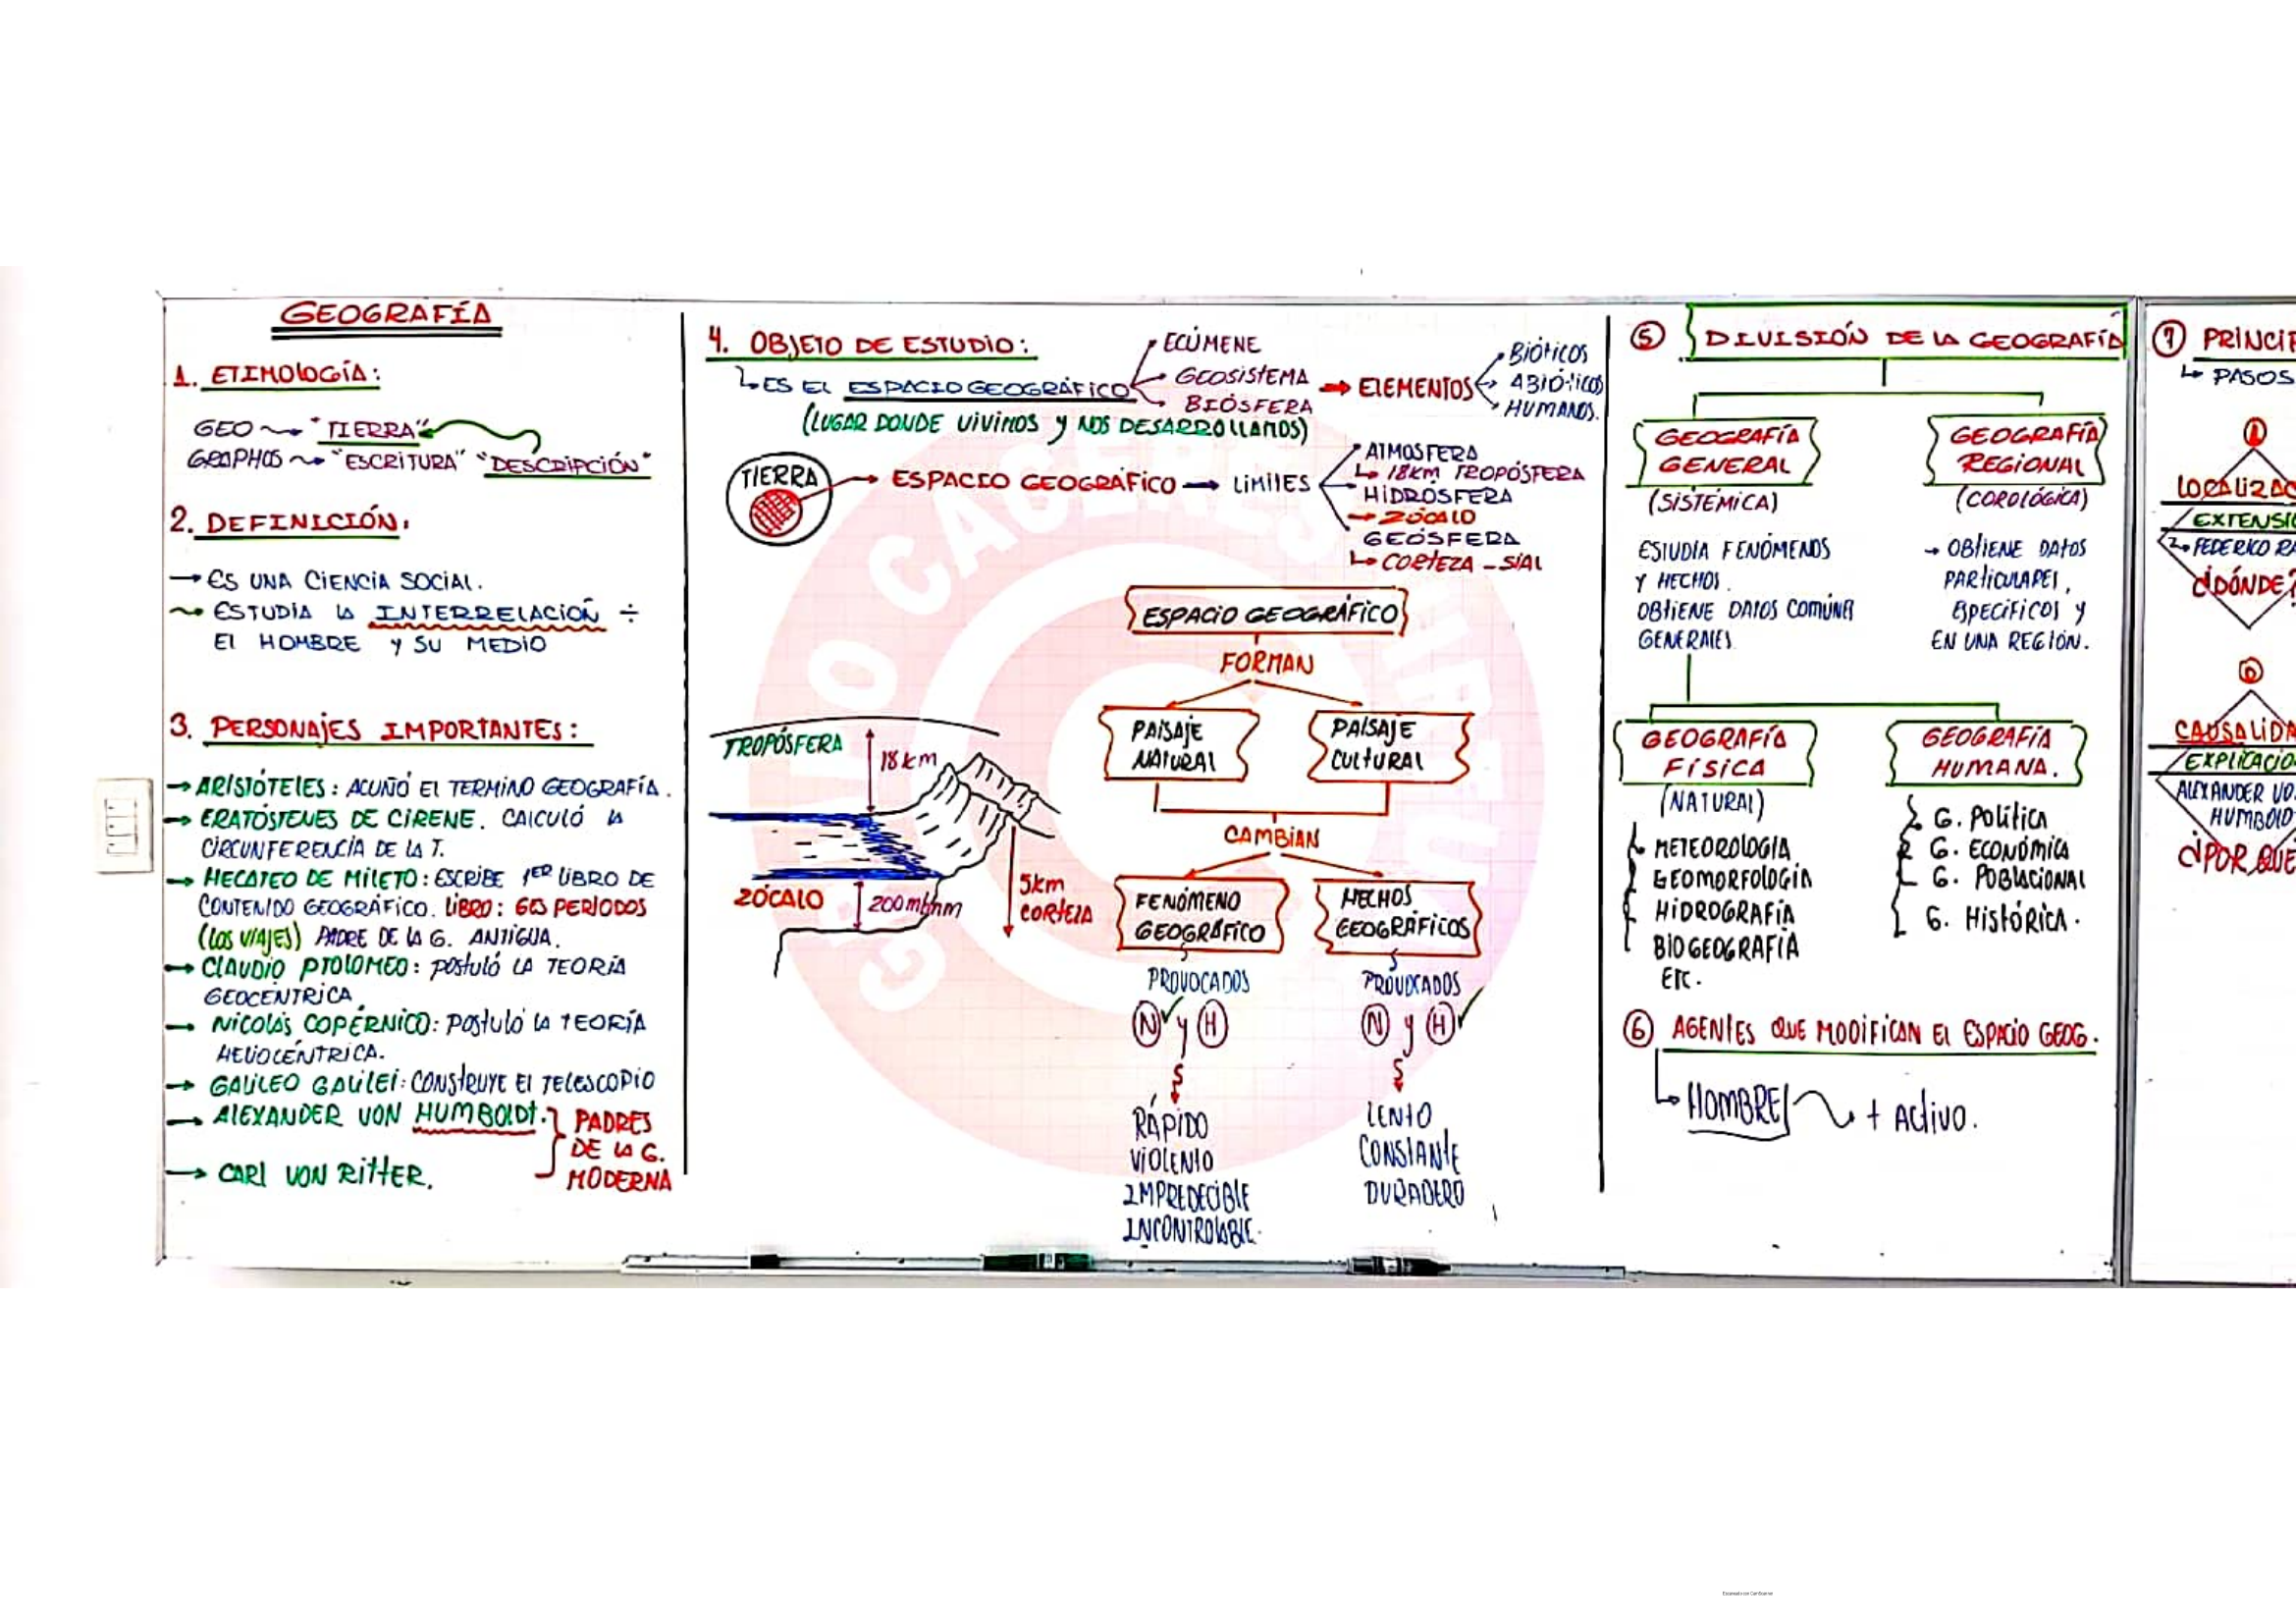 GEOGRAFÍA
1. ETIMOLOGÍA:
GEO → "TIERRA"
GRAPHOS → "ESCRITURA" "DESCRIPCIÓN"
2. DEFINICIÓN:
→ ES UNA CIENCIA SOCIAL.
→ ESTUDIA LA INTERRELACIÓN ÷
EL HOMBRE Y SU MEDIO
3. PERSONAJES IMPORTANTES:
→ ARISTÓTELES: ACUÑÓ EL TERMINO GEOGRAFÍA.
→ ERATÓSTENES DE CIRENE. CALCULÓ LA
CIRCUNFERENCIA DE LA T.
→ HECATEO DE MILETO: ESCRIBE 1ER LIBRO DE
CONTENIDO GEOGRÁFICO. LIBRO: GES PERIODOS
(LOS VIAJES) PADRE DE LA G. ANTIGUA.
→ CLAUDIO PTOLOMEO: POSTULÓ LA TEORÍA
GEOCÉNTRICA
→ NICOLÁS COPÉRNICO: POSTULÓ LA TEORÍA
HELIOCÉNTRICA.
→ GALILEO GALILEI: CONSTRUYE EL TELESCOPIO
→ ALEXANDER VON HUMBOLDT.
→ CARL VON RITTER.
PADRES
DE LA G.
MODERNA
4. OBJETO DE ESTUDIO:
ES EL ESPACIO GEOGRÁFICO
(LUGAR DONDE VIVIMOS Y NOS DESARROLLAMOS)
ECÚMENE
GEOSISTEMA
BIÓSFERA
→ ELEMENTOS
BIÓTICOS
ABIÓTICOS
HUMANOS.
TIERRA → ESPACIO GEOGRÁFICO → LÍMITES
ATMOSFERA
18km TROPÓSFERA
HIDRÓSFERA
→ ZÓCALO
GEÓSFERA
CORTEZA - SIAL
TROPÓSFERA
18km
ZÓCALO
200 m
5km
CORTEZA
ESPACIO GEOGRÁFICO
FORMAN
PAISAJE
NATURAL
PAISAJE
CULTURAL
CAMBIAN
FENÓMENO
GEOGRÁFICO
HECHOS
GEOGRÁFICOS
PROVOCADOS
N y H
RÁPIDO
VIOLENTO
IMPREDECIBLE
INCONTROLABLE.
PROVOCADOS
N y H
LENTO
CONSTANTE
DURADERO
5 DIVISIÓN DE LA GEOGRAFÍA
GEOGRAFÍA
GENERAL
(SISTÉMICA)
ESTUDIA FENÓMENOS
Y HECHOS.
OBTIENE DATOS COMÚNES
GENERALES
GEOGRAFÍA
REGIONAL
(COROLÓGICA)
→ OBTIENE DATOS
PARTICULARES,
ESPECÍFICOS Y
EN UNA REGIÓN.
GEOGRAFÍA
FÍSICA
(NATURAL)
METEOROLOGÍA
GEOMORFOLOGÍA
HIDROGRAFÍA
BIOGEOGRAFÍA
ETC.
GEOGRAFÍA
HUMANA.
G. Política
G. ECONÓMICA
G. POBLACIONAL
G. Histórica.
6 AGENTES QUE MODIFICAN EL ESPACIO GEOG.
HOMBRE + Activo.
7 PRINCIP
PASOS
LOCALIZAC
EXTENSIÓ
FEDERICO RA
¿DÓNDE?
CAUSALIDA
EXPLICACIÓ
ALEXANDER VO
HUMBOLD
¿POR QUÉ
Escaneado con CamScanner